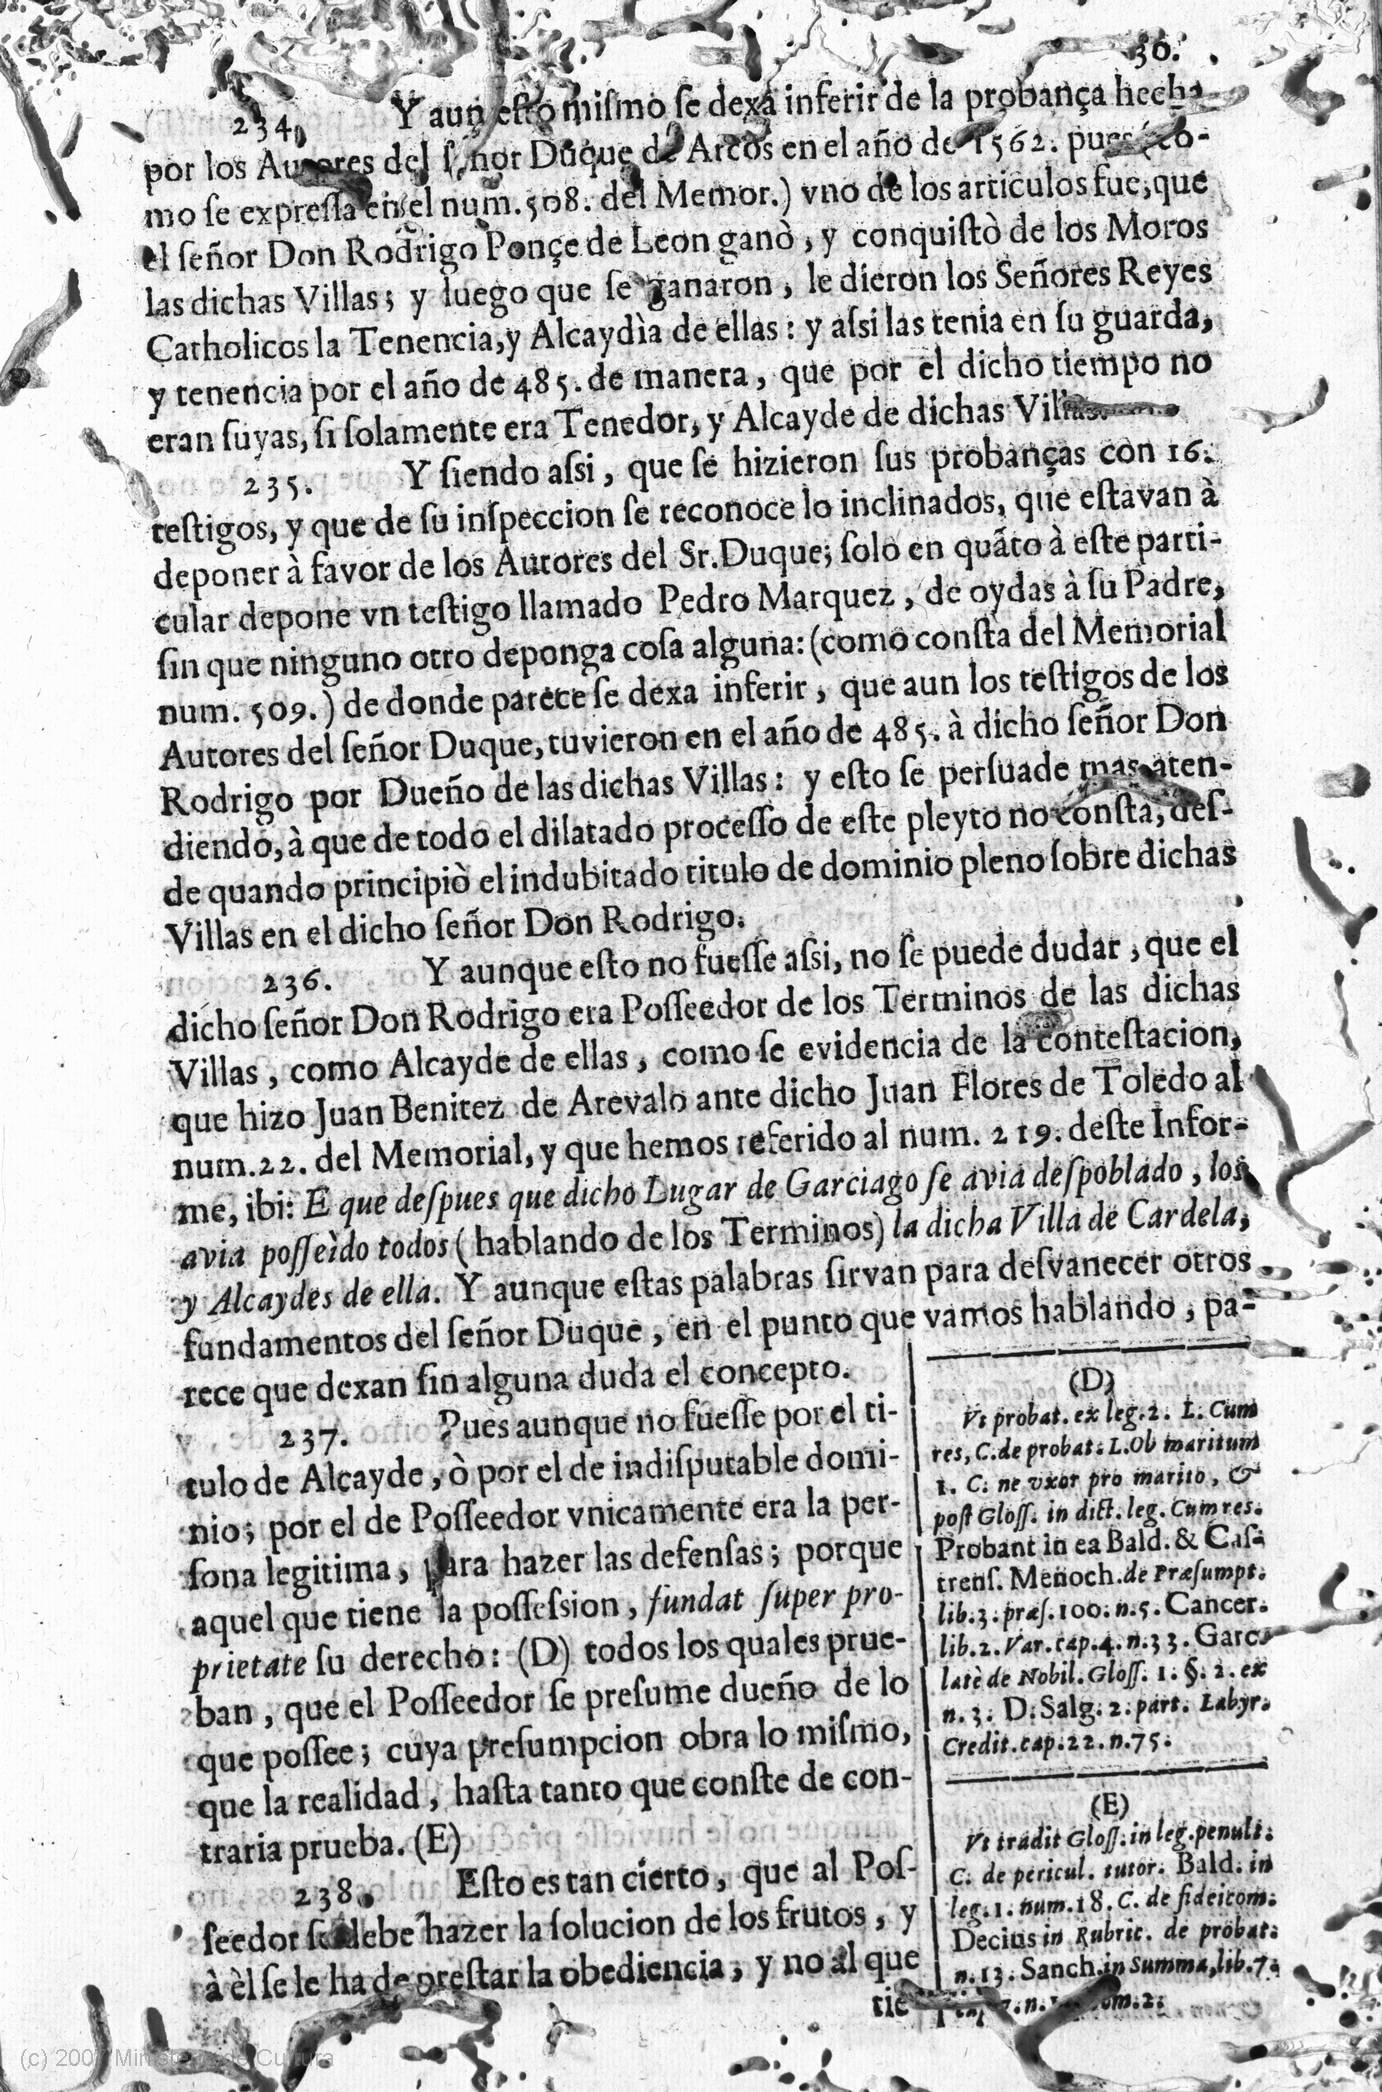 30.
234. Y aun esto mismo se dexa inferir de la probança hecha
por los Autores del señor Duque de Arcos en el año de 1562. pues (co-
mo se expressa en el num. 508. del Memor.) vno de los articulos fue, que
el señor Don Rodrigo Ponçe de Leon ganò, y conquistò de los Moros
las dichas Villas; y luego que se ganaron, le dieron los Señores Reyes
Catholicos la Tenencia, y Alcaydìa de ellas: y assi las tenia en su guarda,
y tenencia por el año de 485. de manera, que por el dicho tiempo no
eran suyas, si solamente era Tenedor, y Alcayde de dichas Villas.
235. Y siendo assi, que se hizieron sus probanças con 16.
testigos, y que de su inspeccion se reconoce lo inclinados, que estavan à
deponer à favor de los Autores del Sr. Duque; solo en quãto à este parti-
cular depone vn testigo llamado Pedro Marquez, de oydas à su Padre,
sin que ninguno otro deponga cosa alguna: (como consta del Memorial
num. 509.) de donde parece se dexa inferir, que aun los testigos de los
Autores del señor Duque, tuvieron en el año de 485. à dicho señor Don
Rodrigo por Dueño de las dichas Villas: y esto se persuade mas aten-
diendo, à que de todo el dilatado processo de este pleyto no consta, des-
de quando principiò el indubitado titulo de dominio pleno sobre dichas
Villas en el dicho señor Don Rodrigo.
236. Y aunque esto no fuesse assi, no se puede dudar, que el
dicho señor Don Rodrigo era Posseedor de los Terminos de las dichas
Villas, como Alcayde de ellas, como se evidencia de la contestacion,
que hizo Juan Benitez de Arevalo ante dicho Juan Flores de Toledo al
num. 22. del Memorial, y que hemos referido al num. 219. deste Infor-
me, ibi: E que despues que dicho Lugar de Garciago se avia despoblado, los
avia posseìdo todos (hablando de los Terminos) la dicha Villa de Cardela,
y Alcaydes de ella. Y aunque estas palabras sirvan para desvanecer otros
fundamentos del señor Duque, en el punto que vamos hablando, pa-
rece que dexan sin alguna duda el concepto.
237. Pues aunque no fuesse por el ti-
tulo de Alcayde, ò por el de indisputable domi-
nio; por el de Posseedor vnicamente era la per-
sona legitima, para hazer las defensas; porque
aquel que tiene la possession, fundat super pro-
prietate su derecho: (D) todos los quales prue-
ban, que el Posseedor se presume dueño de lo
que possee; cuya presumpcion obra lo mismo,
que la realidad, hasta tanto que conste de con-
traria prueba. (E)
238. Esto es tan cierto, que al Pos-
seedor se debe hazer la solucion de los frutos, y
à èl se le ha de prestar la obediencia, y no al que
tie-
(D)
Vt probat. ex leg. 2. L. Cum
res, C. de probat. L. Ob maritum
1. C. ne vxor pro marito, &
post Gloss. in dict. leg. Cum res.
Probant in ea Bald. & Cas-
trens. Menoch. de Præsumpt.
lib. 3. præs. 100. n. 5. Cancer.
lib. 2. Var. cap. 4. n. 33. Garc.
latè de Nobil. Gloss. 1. §. 2. ex
n. 3. D. Salg. 2. part. Labyr.
Credit. cap. 22. n. 75.
(E)
Vt tradit Gloss. in leg. penult.
C. de pericul. tutor. Bald. in
leg. 1. num. 18. C. de fideicom.
Decius in Rubric. de probat.
n. 13. Sanch. in Summa, lib. 7.
7. n. tom. 2.
(c) 200 Ministerio de Cultura